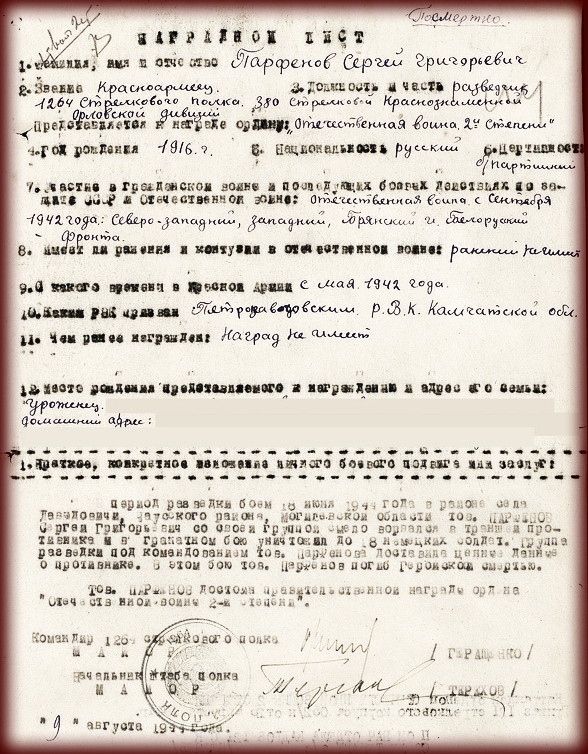 Посмертно.
НАГРАДНОЙ ЛИСТ
1. Фамилия, имя и отчество Парфенов Сергей Григорьевич
2. Звание Красноармеец. 3. Должность и часть разведчик
1264 Стрелкового полка. 380 Стрелковой Краснознаменной
Орловской дивизии
Представляется к награде ордену „Отечественная война 2й степени"
4. Год рождения 1916 г. 5. Национальность русский 6. Партийность
б/партийный
7. Участие в Гражданской войне и последующих боевых действиях по за-
щите СССР и Отечественной войне: Отечественная война с Сентября
1942 года: Северо-западный, западный, Брянский и Белорусский
Фронта.
8. Имеет ли ранения и контузии в отечественной войне: ранений не имеет
9. С какого времени в Красной Армии с Мая 1942 года.
10. Каким РВК призван Петропавловским Р.В.К. Камчатской обл.
11. Чем ранее награжден: Наград не имеет
12. Место рождения представляемого к награждению и адрес его семьи:
Уроженец.
Домашний адрес:
1. Краткое, конкретное изложение личного боевого подвига или заслуг:
период разведки боем 18 июня 1944 года в районе села
Давыдовичи, района, Могилевской области тов. ПАРФЕНОВ
Сергей Григорьевич со своей группой смело ворвался в траншеи про-
тивника и в гранатном бою уничтожил до 18 немецких солдат. Группа
разведки под командованием тов. Парфенова доставила ценные данные
о противнике. В этом бою тов. Парфенов погиб героиской смертью.
Тов. ПАРФЕНОВ достоин правительственной награды ордена
"Отечественной войны 2-й степени".
Командир 1264 стрелкового полка
МАЙОР / ГЕРАЩЕНКО /
Начальник штаба полка
МАЙОР / ТАРАХОВ /
" 9 " августа 1944 года.